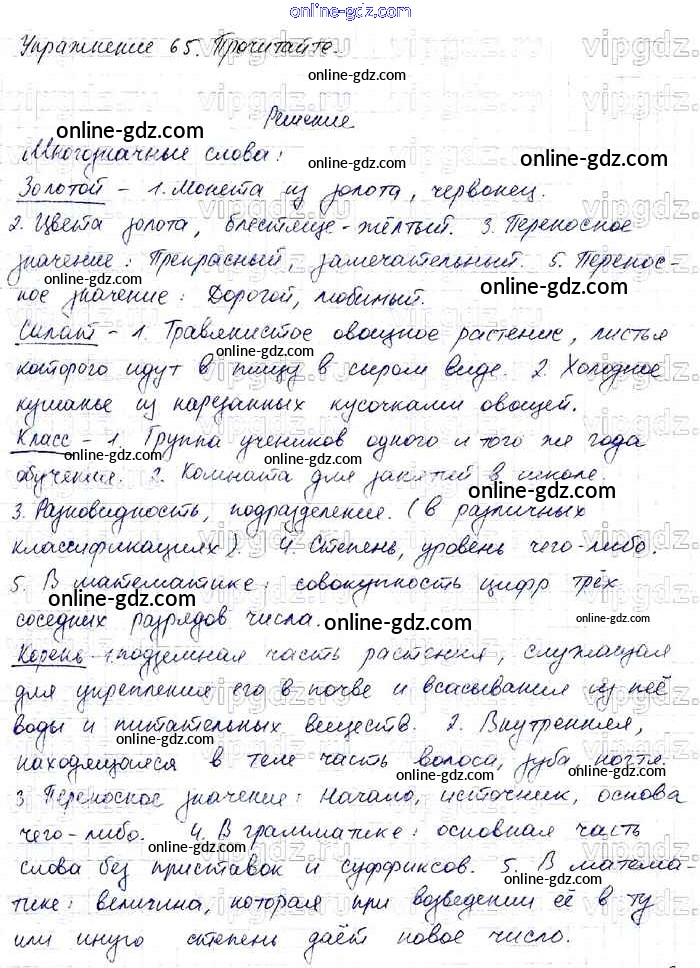 online-gdz.com
Упражнение 65. Прочитайте.
online-gdz.com
Решение
online-gdz.com
Многозначные слова:
online-gdz.com
online-gdz.com
Золотой - 1. Монета из золота, червонец.
2. Цвета золота, блестяще-жёлтый. 3. Переносное
значение: Прекрасный, замечательный. 5. Перенос-
online-gdz.com
online-gdz.com
ное значение: Дорогой, любимый.
online-gdz.com
Салат - 1. Травянистое овощное растение, листья
online-gdz.com
которого идут в пищу в сыром виде. 2. Холодное
кушанье из нарезанных кусочками овощей.
online-gdz.com
Класс - 1. Группа учеников одного и того же года
online-gdz.com
обучения. 2. Комната для занятий в школе.
online-gdz.com
3. Разновидность, подразделение. (в различных
классификациях). 4. Степень, уровень чего-либо.
online-gdz.com
5. В математике: совокупность цифр трёх
online-gdz.com
соседних разрядов числа.
online-gdz.com
online-gdz.com
Корень - 1. подземная часть растения, служащая
для укрепления его в почве и всасывания из неё
воды и питательных веществ. 2. Внутренняя,
online-gdz.com
находящаяся в теле часть волоса, зуба ногтя.
online-gdz.com
3. Переносное значение: Начало, источник, основа
online-gdz.com
чего-либо. 4. В грамматике: основная часть
слова без приставок и суффиксов. 5. В матема-
online-gdz.com
online-gdz.com
тике: величина, которая при возведении её в ту
или иную степень даёт новое число.